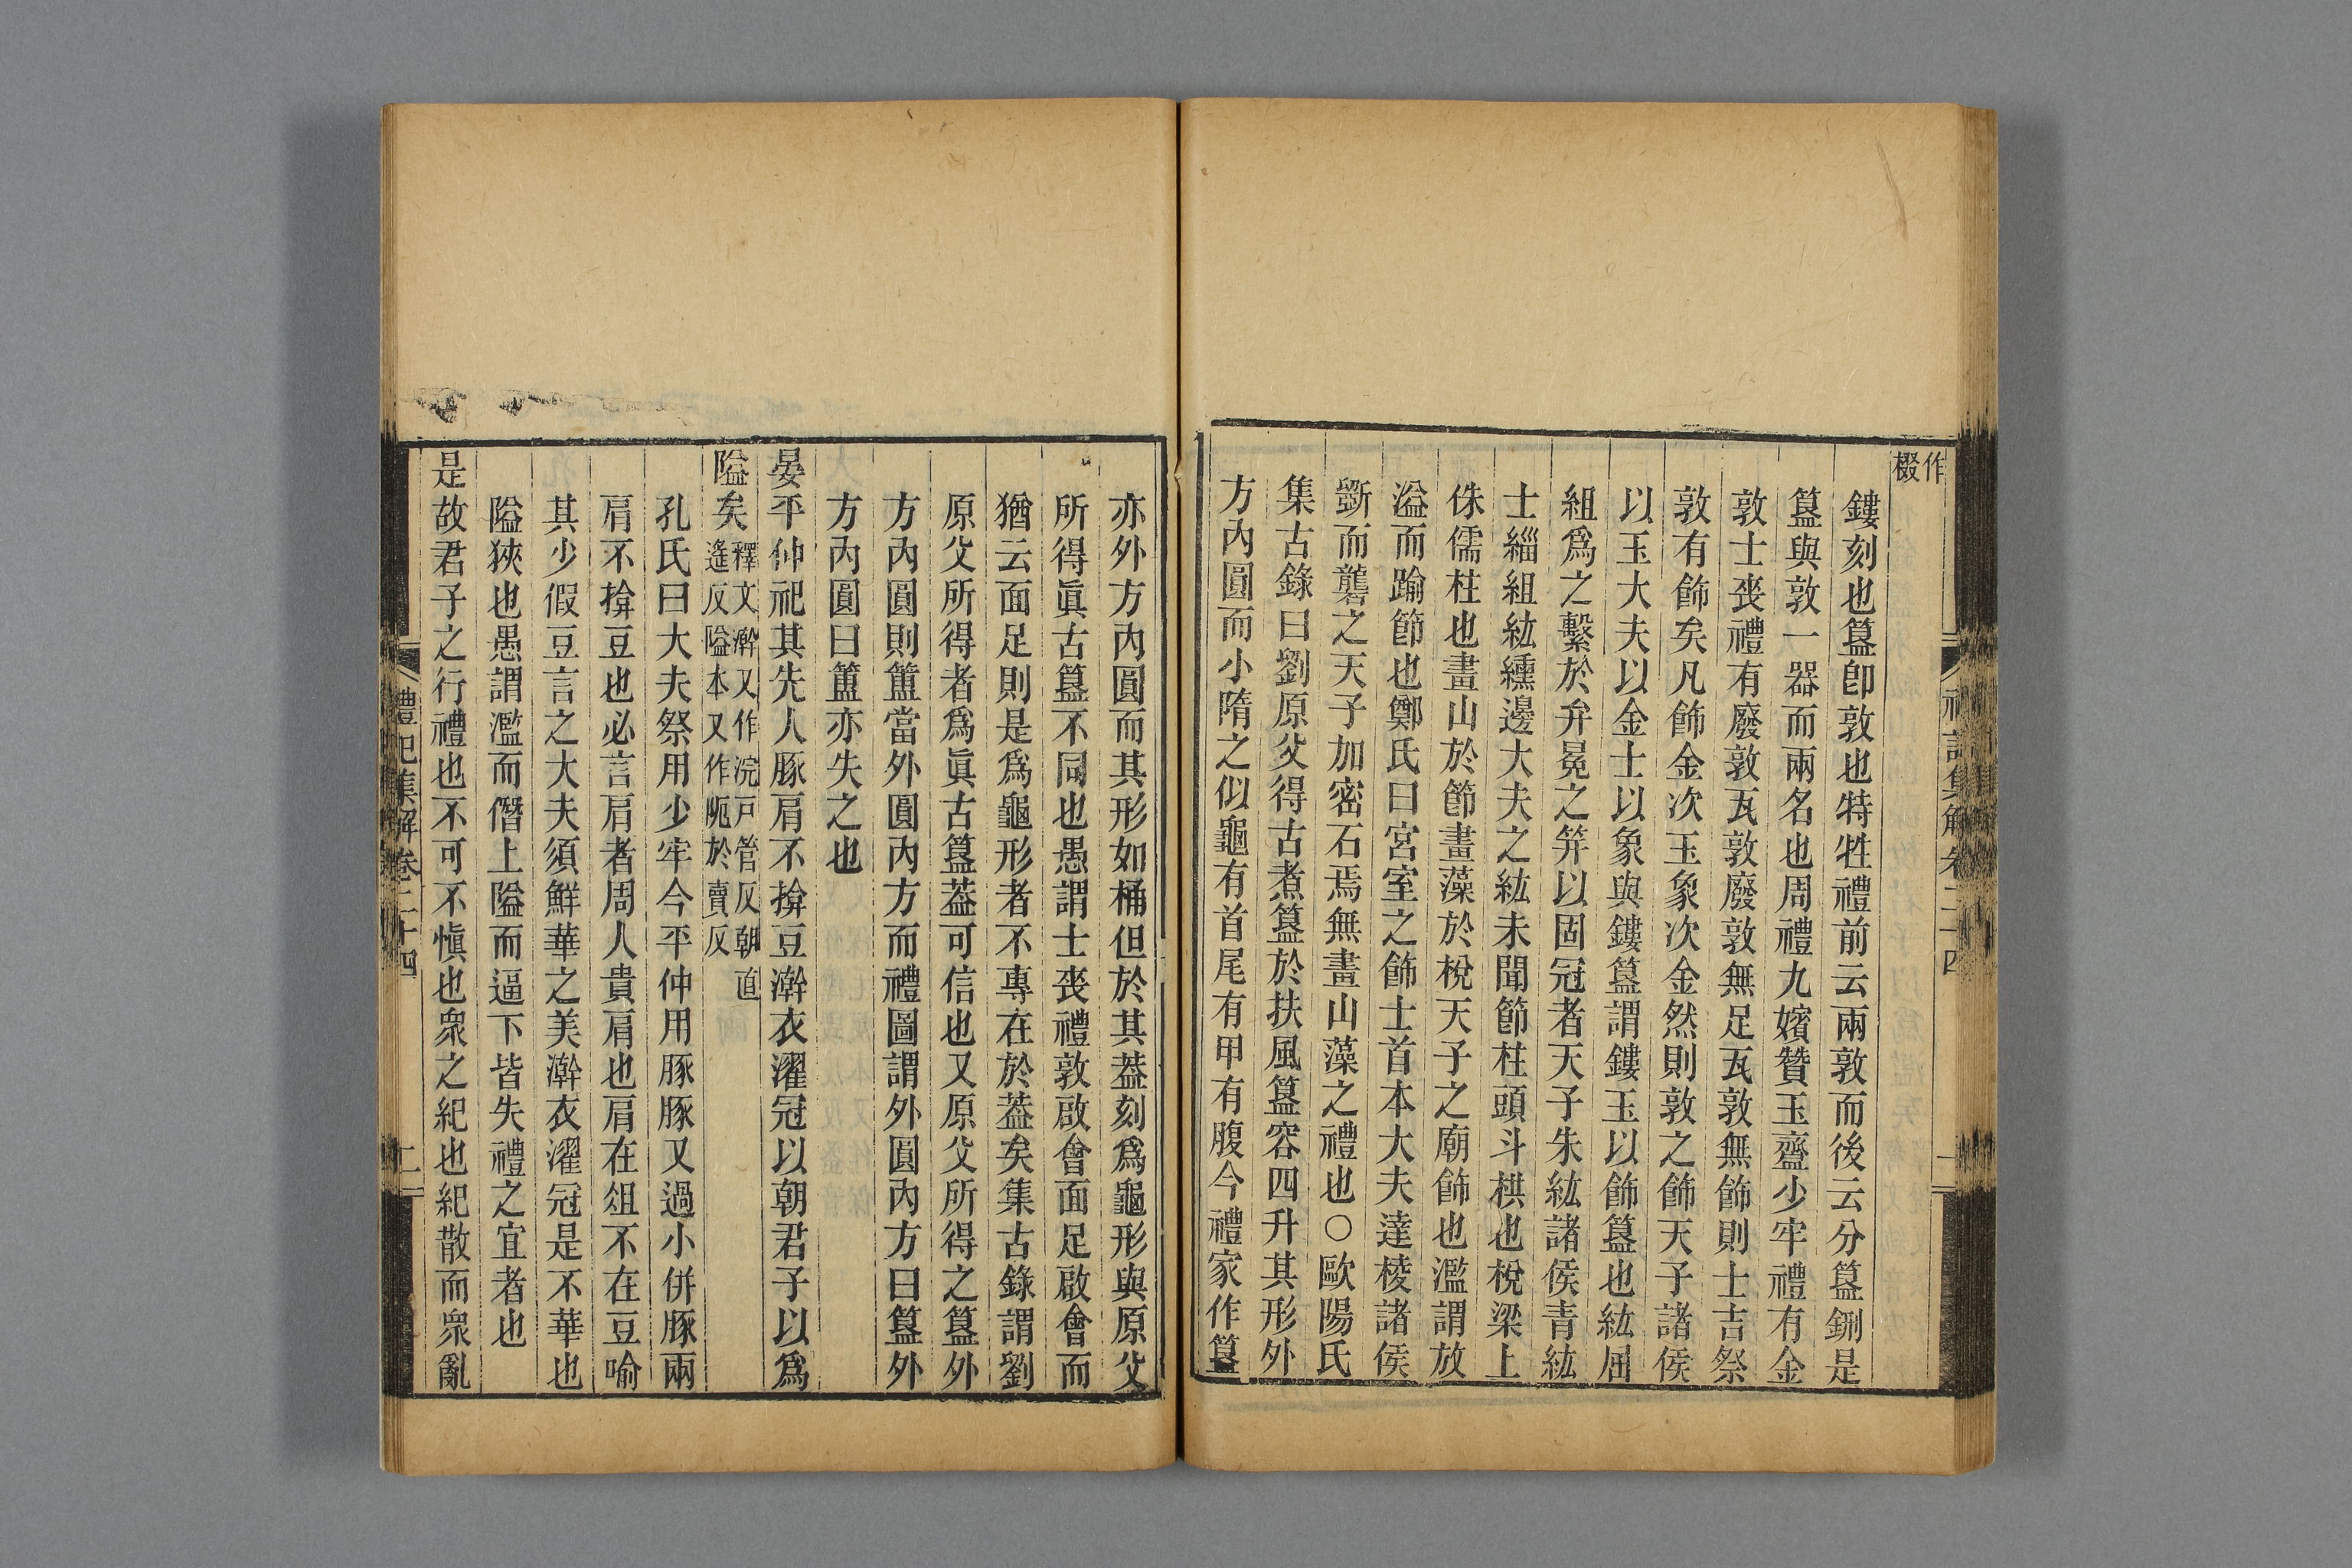 作
棳
鏤刻也簋卽敦也特牲禮前云兩敦而後云分簋鉶是
簋與敦一器而兩名也周禮九嬪贊玉齍少牢禮有金
敦士喪禮有廢敦瓦敦廢敦無足瓦敦無飾則士吉祭
敦有飾矣凡飾金次玉象次金然則敦之飾天子諸侯
以玉大夫以金士以象與鏤簋謂鏤玉以飾簋也紘屈
組爲之繫於弁冕之筓以固冠者天子朱紘諸侯青紘
士緇組紘纁邊大夫之紘未聞節柱頭斗栱也梲梁上
侏儒柱也畫山於節畫藻於梲天子之廟飾也濫謂放
溢而踰節也鄭氏曰宮室之飾士首本大夫達棱諸侯
斲而礱之天子加密石焉無畫山藻之禮也○歐陽氏
集古錄曰劉原父得古煮簋於扶風簋容四升其形外
方內圓而小隋之似龜有首尾有甲有腹今禮家作簋
亦外方內圓而其形如桶但於其葢刻爲龜形與原父
所得眞古簋不同也愚謂士喪禮敦啟會面足啟會而
猶云面足則是爲龜形者不專在於葢矣集古錄謂劉
原父所得者爲眞古簋葢可信也又原父所得之簋外
方內圓則簠當外圓內方而禮圖謂外圓內方曰簋外
方內圓曰簠亦失之也
晏平仲祀其先人豚肩不揜豆澣衣濯冠以朝君子以爲
隘矣釋文澣又作浣戸管反朝直
遙反隘本又作阨於賣反
孔氏曰大夫祭用少牢今平仲用豚豚又過小併豚兩
肩不揜豆也必言肩者周人貴肩也肩在俎不在豆喻
其少假豆言之大夫須鮮華之美澣衣濯冠是不華也
隘狹也愚謂濫而僭上隘而逼下皆失禮之宜者也
是故君子之行禮也不可不愼也衆之紀也紀散而衆亂
禮記集解卷二十四
二